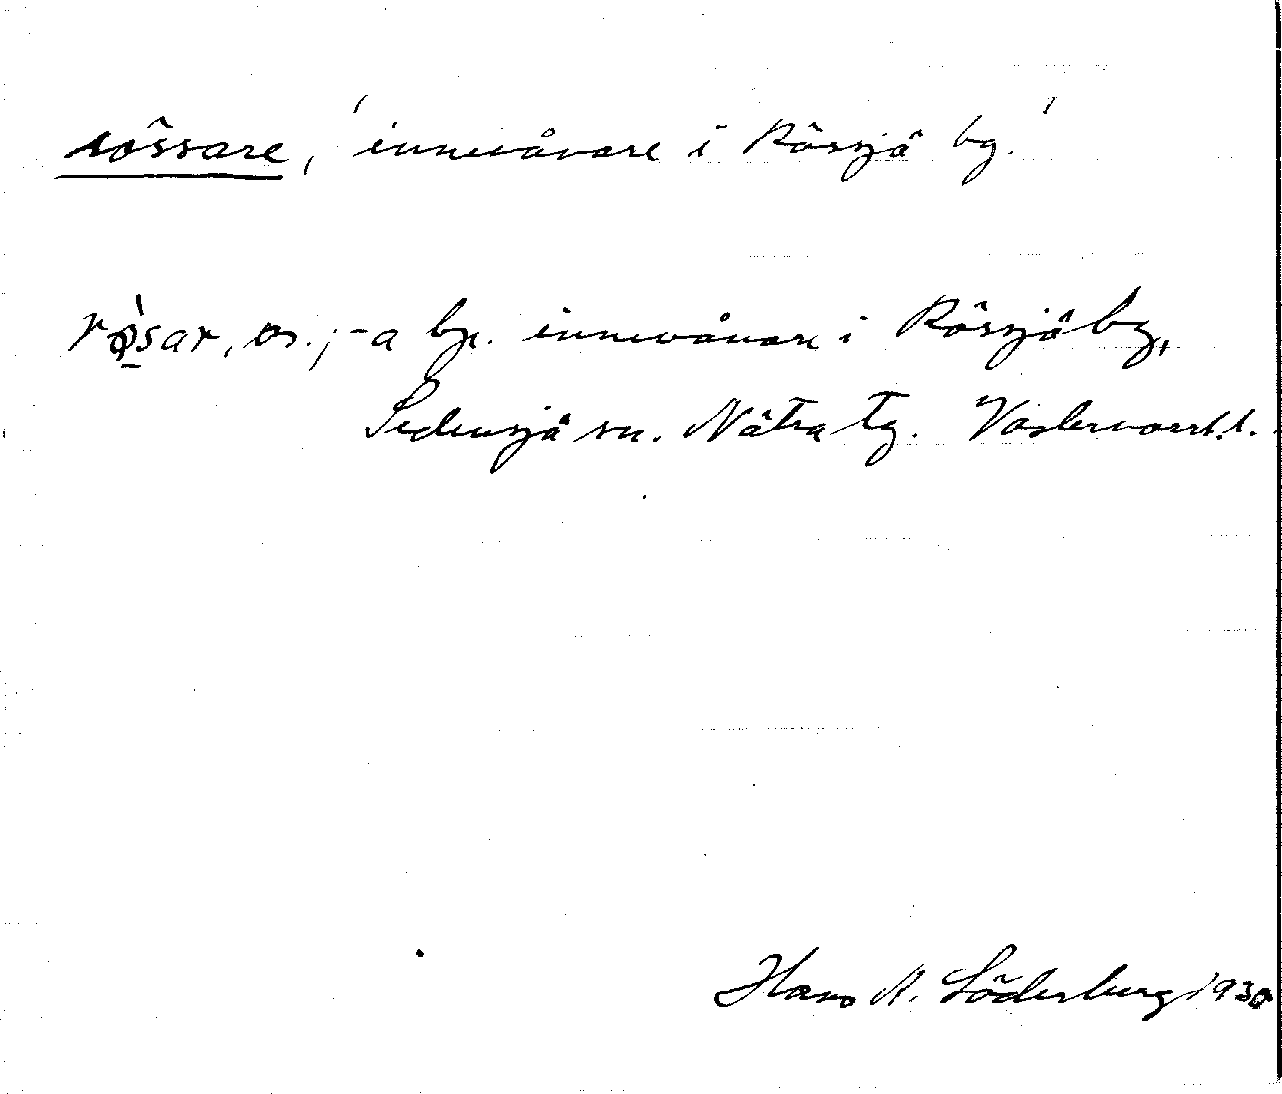 rössare, 'innevånare i Rössjö by.'
rø̠̀sar, m.; -a bp. innevånare i Rössjö by,
Sidensjö sn. Nätra tg. Västernorrl.l.
Hans A. Söderberg 1930